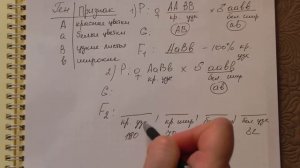 Ген Признак
А красные цветки
а белые цветки
В узкие листья
в широкие
1) Р: ♀ АА ВВ × ♂ аавв
кр. узк бел. шир
G: (АВ) (ав)
F₁: АаВв - 100% кр. узк
2) Р: ♀ АаВв × ♂ аавв
кр. узк бел. шир
G: (ав)
F₂:
кр узк кр. шир бел узк